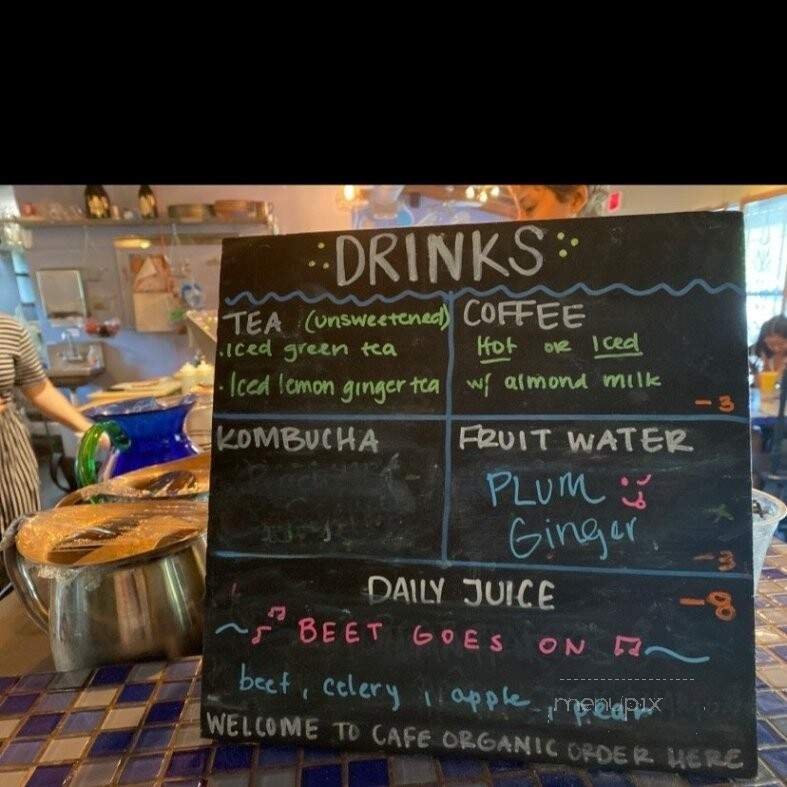 DRINKS
TEA (unsweetened)
• Iced green tea
• Iced lemon ginger tea
COFFEE
Hot or Iced
w/ almond milk
- 3
KOMBUCHA
FRUIT WATER
PLUM
Ginger
- 3
DAILY JUICE
- 8
~ ♫ BEET GOES ON ♫ ~
beet, celery, apple, pear
menupix
WELCOME TO CAFE ORGANIC ORDER HERE